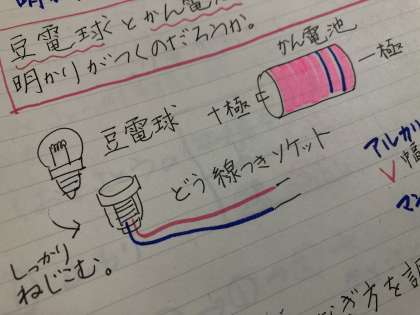 豆電球とかん電
明かりがつくのだろうか。
かん電池
一極
十極
豆電球
どう線つきソケット
アルカリ
しっかり
ねじこむ。
マン
ぎ方を調